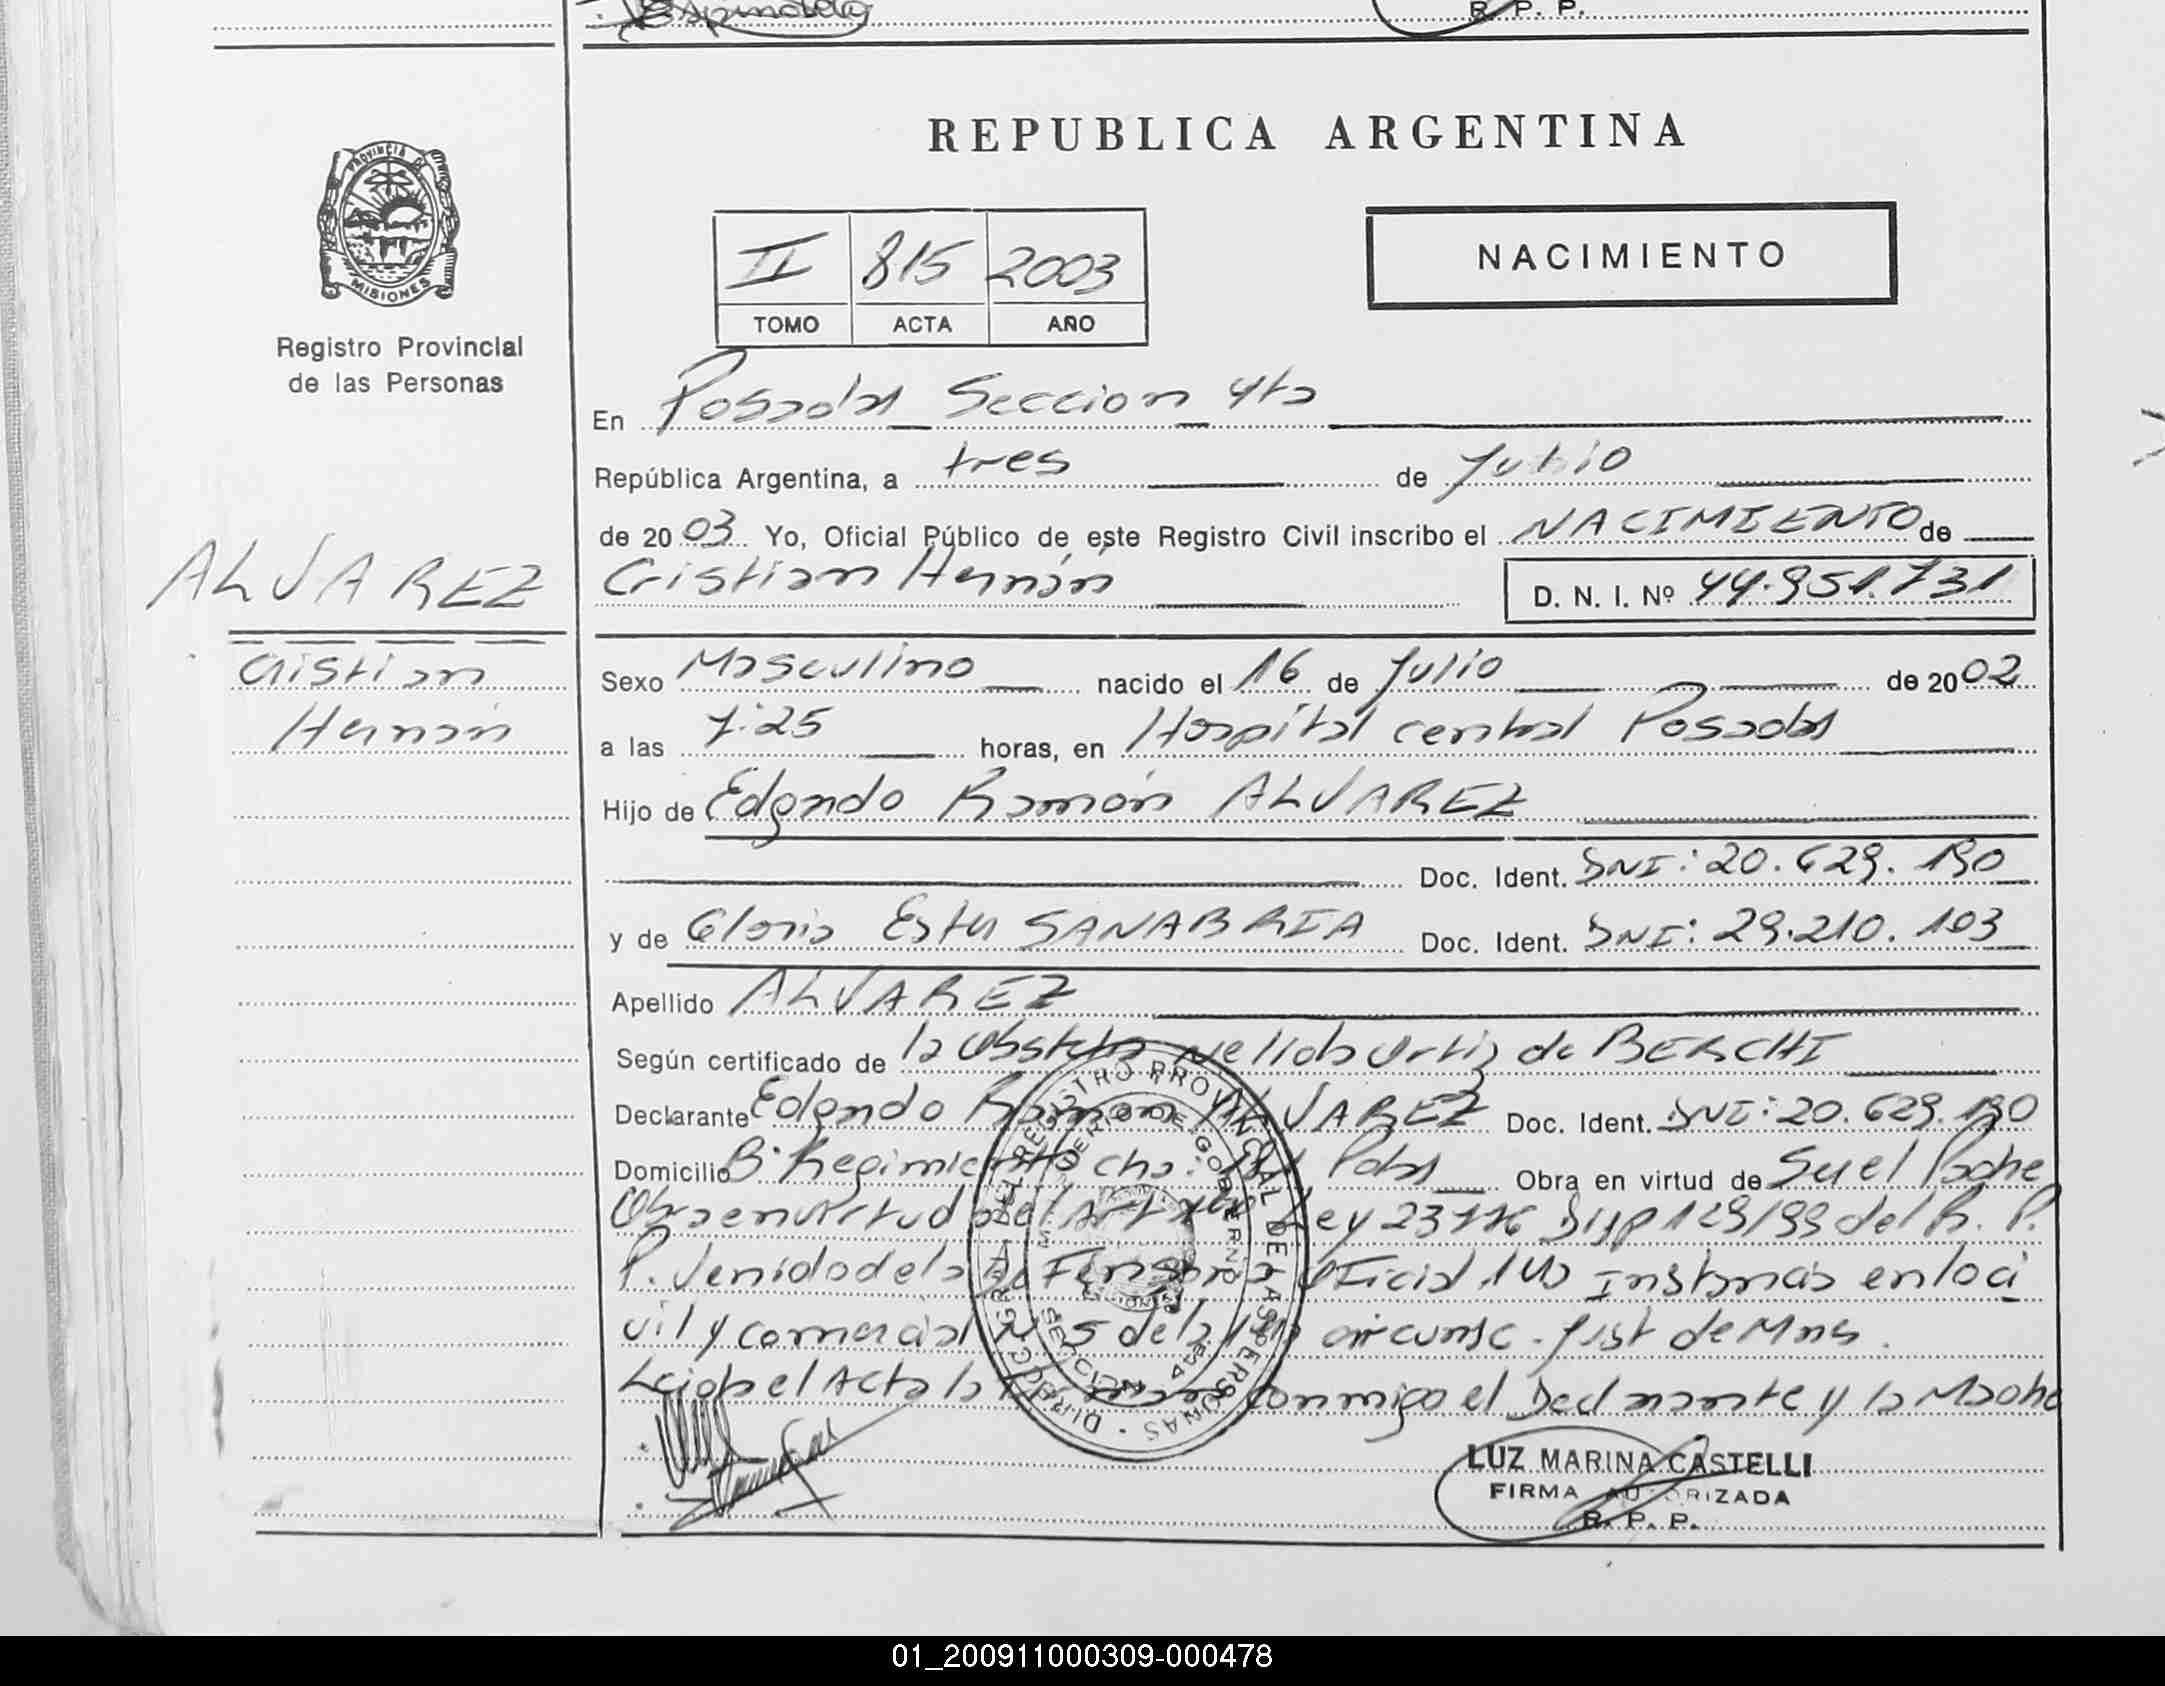 R. P. P.
REPUBLICA ARGENTINA
PROVINCIA DE
MISIONES
Registro Provincial
de las Personas
II 815 2003
TOMO ACTA AÑO
NACIMIENTO
En Posadas Seccion 4ta
República Argentina, a tres de Julio
de 2003 Yo, Oficial Público de este Registro Civil inscribo el NACIMIENTO de
ALVAREZ
Cristian Hernán
Cristian Hernán D. N. I. Nº 44.951.731
Sexo Masculino nacido el 16 de Julio de 2002
a las 7:25 horas, en Hospital central Posadas
Hijo de Edgardo Ramón ALVAREZ
Doc. Ident. DNI: 20.629.190
y de Gloria Ester SANABRIA Doc. Ident. DNI: 29.210.103
Apellido ALVAREZ
Según certificado de la Obsteta Nellida Ortiz de BERCHI
Declarante Edgardo Ramon ALVAREZ Doc. Ident. DNI: 20.629.190
Domicilio Bº Regimiento cha: Pdas Obra en virtud de Ser el Padre
Obra en virtud del Art Ley 23776 Disp 129/99 del R. P.
P. Venido de la Defensoria Oficial 1ra Instancia en lo ci
vil y comercial Nº 5 de la 1ra circunsc. Jist de Mnes.
Leida el Acta la conmigo el Declarante y la Madre
DIRECC. GRAL. DEL REGISTRO PROVINCIAL DE LAS PERSONAS
MINISTERIO DE GOBIERNO
SECCION 4ta.
LUZ MARINA CASTELLI
FIRMA AUTORIZADA
R. P. P.
01_200911000309-000478